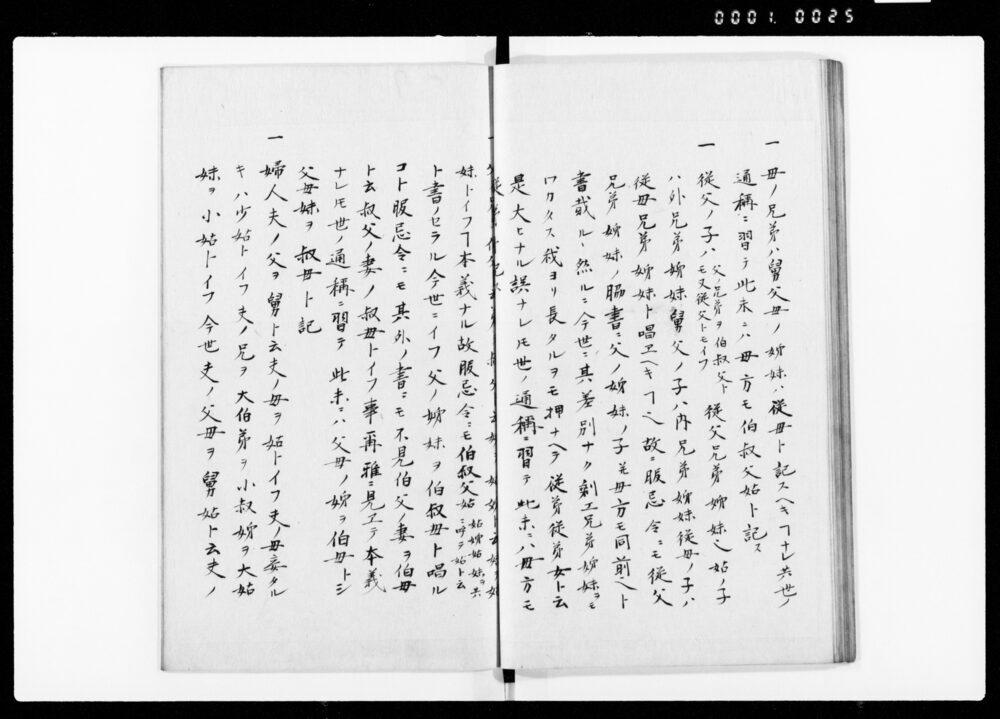 0001.0025
一 母ノ兄弟ハ舅父母ノ姉妹ハ従母ト記スヘキヿナレ共世ノ
通称ニ習テ此末ニハ母方モ伯叔父姑ト記ス
一 従父ノ子ハ父ノ兄弟ヲ伯叔父トモ又従父トモイフ従父兄弟姉妹也姑ノ子
ハ外兄弟姉妹舅父ノ子ハ内兄弟姉妹従母ノ子ハ
従母兄弟姉妹ト唱ヱヘキヿ也故ニ服忌令ニモ従父
兄弟姉妹ノ脇書ニ父ノ姉妹ノ子并母方モ同前ニト
書載ル然ルニ今世ニ其差別ナク剰エ兄弟姉妹ヲモ
ワカタス我ヨリ長タルヲモ押ナヘテ従弟従弟女ト云
是大ヒナル誤ナレ𪜈世ノ通称ニ習テ此末ニハ母方モ
妹トイフヿ本義ナル故服忌令ニモ伯叔父姑姑姉姑妹ヲ共ニ呼テ姑ト云
ト書ノセラル今世ニイフ父ノ姉妹ヲ伯叔母ト唱ル
コト服忌令ニモ其外ノ書ニモ不見伯父ノ妻ヲ伯母
ト云叔父ノ妻ノ叔母トイフ事再雅ニ見ヱテ本義
ナレ𪜈世ノ通称ニ習テ此末ニハ父母ノ姉ヲ伯母トシ
父母妹ヲ叔母ト記
一 婦人夫ノ父ヲ舅ト云夫ノ母ヲ姑トイフ夫ノ母妾タル
キハ少姑トイフ夫ノ兄ヲ大伯弟ヲ小叔姉ヲ大姑
妹ヲ小姑トイフ今世夫ノ父母ヲ舅姑ト云夫ノ